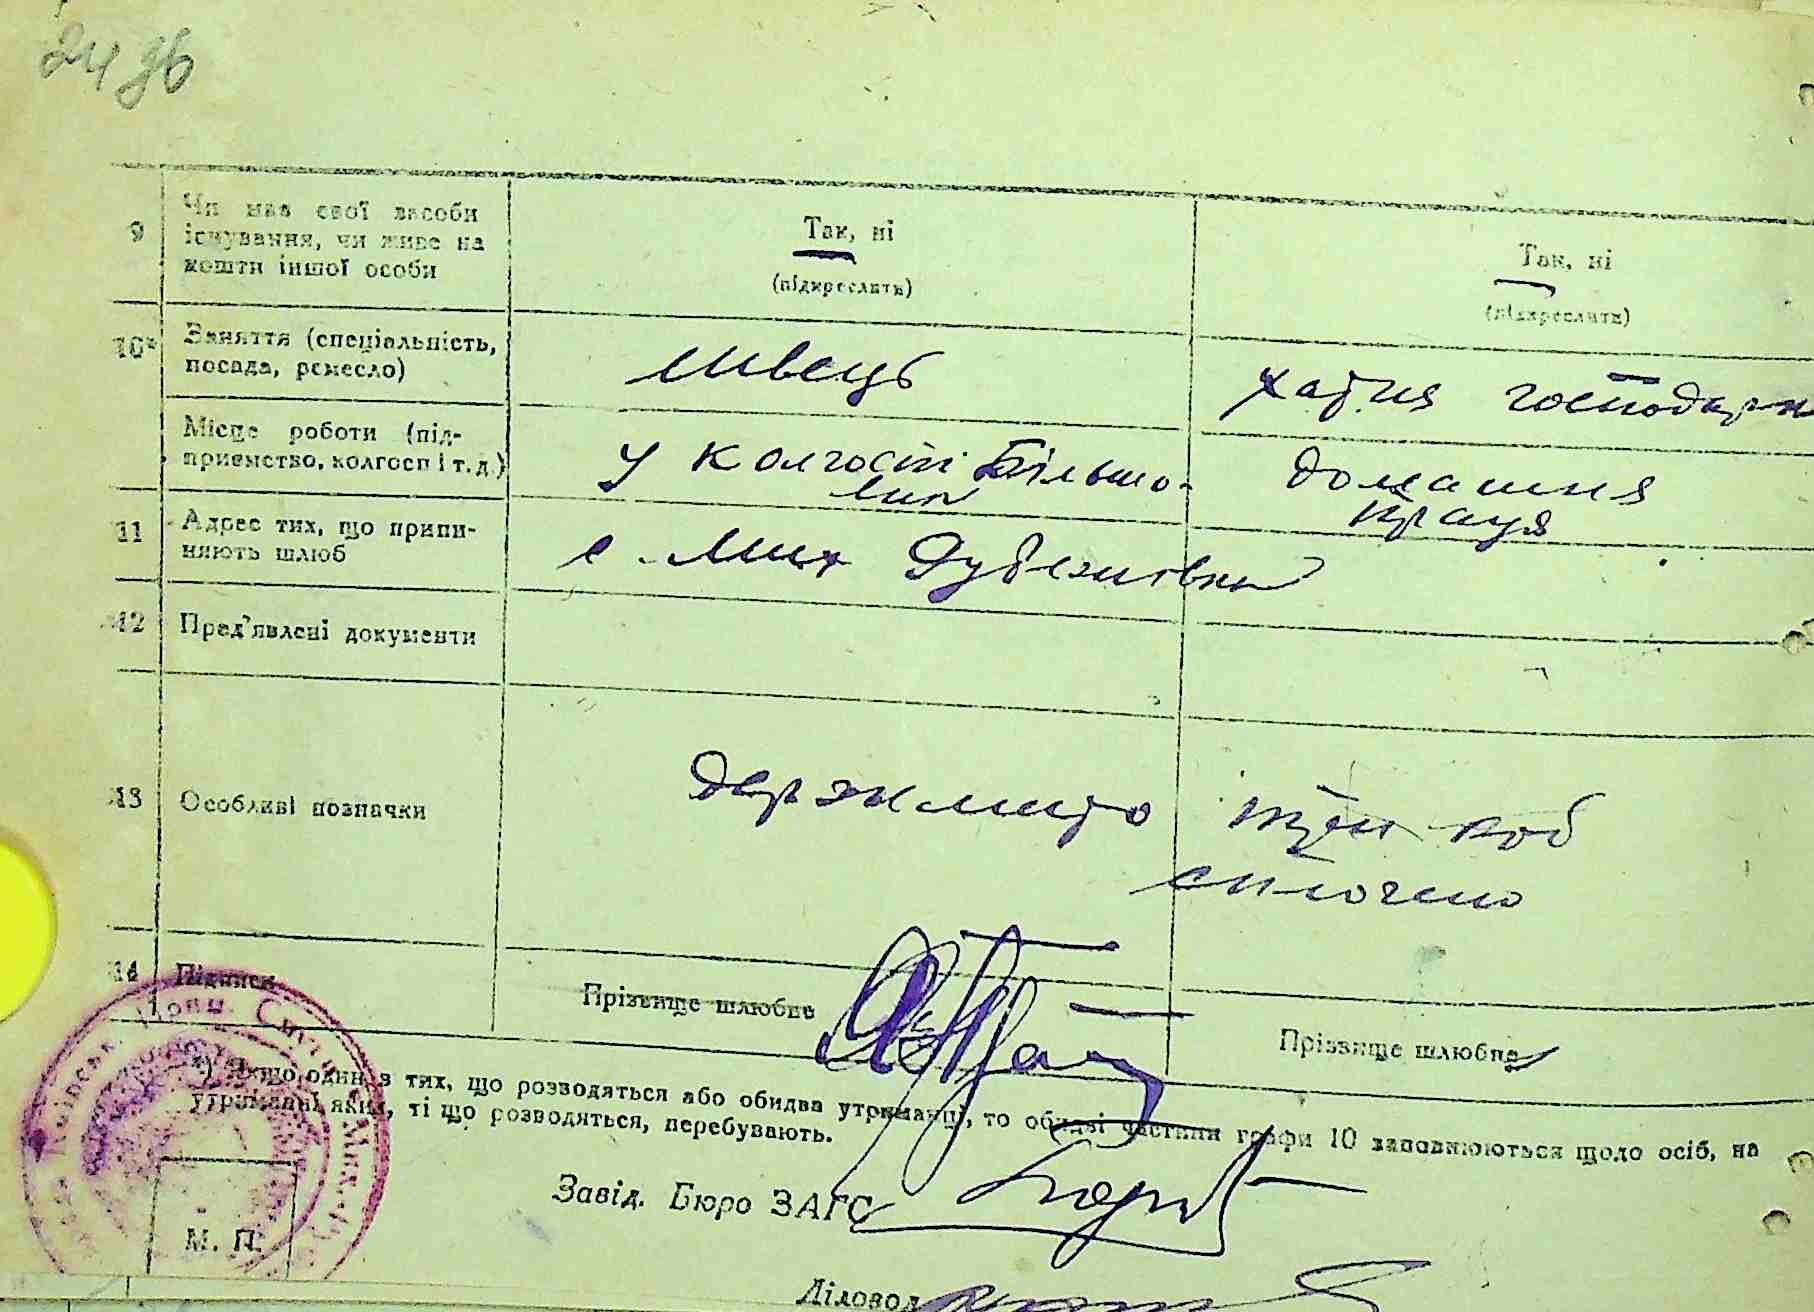 24 зв
9
Чи має свої засоби
існування, чи живе на
кошти іншої особи
Так, ні
(підкреслити)
Так, ні
(підкреслити)
10*
Заняття (спеціальність,
посада, ремесло)
швець
хатня господарк
Місце роботи (під-
приємство, колгосп і т. д.)
у колгоспі Більшо-
вик
домашня
праця
11
Адрес тих, що припи-
няють шлюб
с. Мих Рубежівка
12
Пред'явлені документи
13
Особливі позначки
держмито
крб
сплочено
14
Підписи
Прізвище шлюбне
Прізвище шлюбне
*) Якщо один з тих, що розводяться або обидва утриманці, то обидві частини графи 10 заповнюються щодо осіб, на
утриманні яких, ті що розводяться, перебувають.
Завід. Бюро ЗАГС
М. П.
Діловод